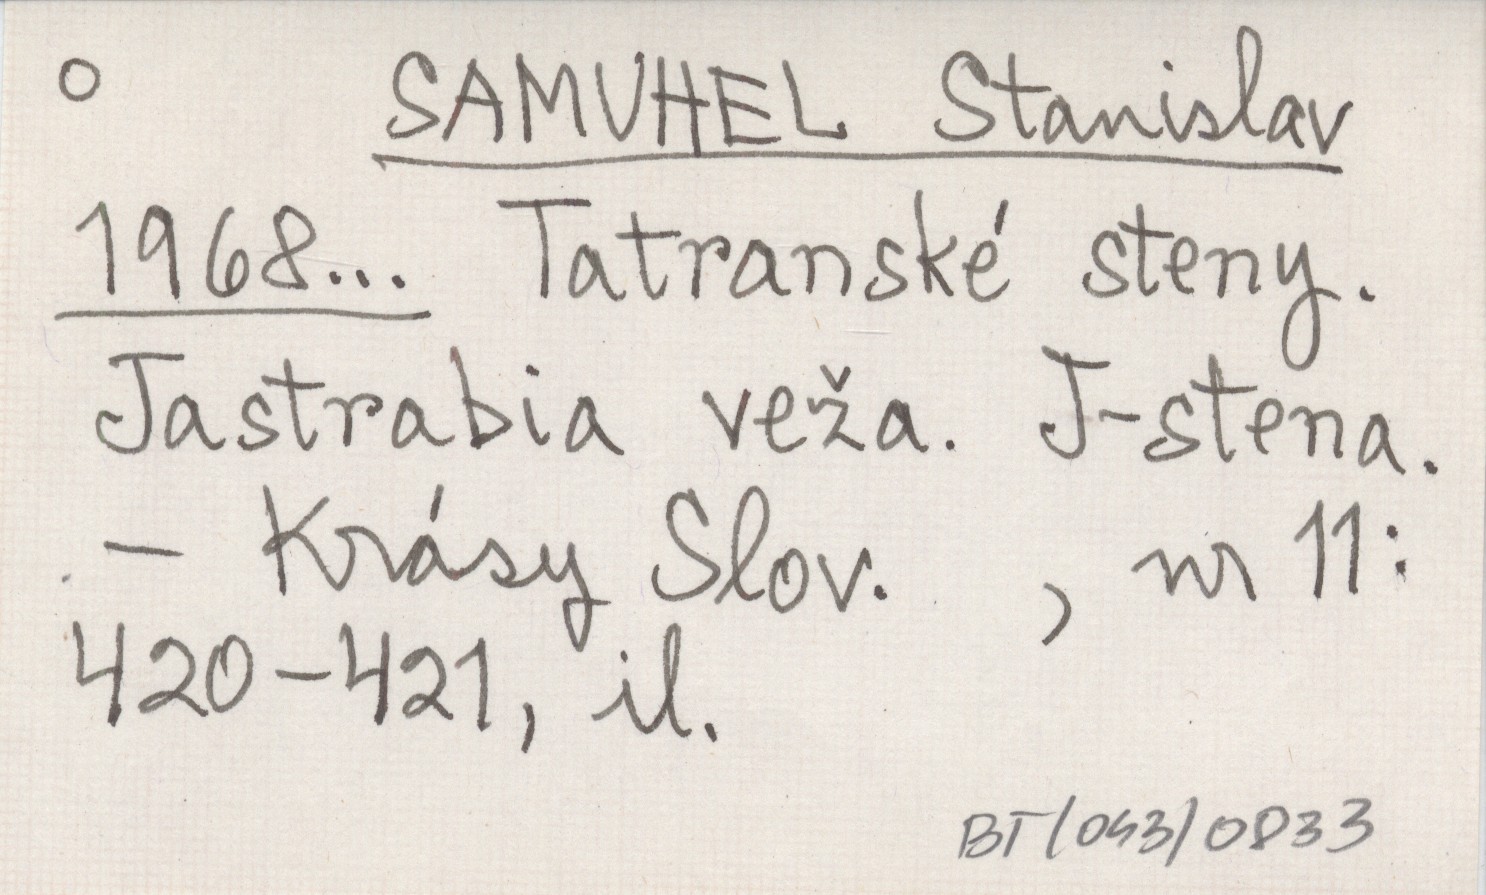 o SAMUHEL Stanislav
1968... Tatranské steny.
Jastrabia veža. J-stena.
- Krásy Slov. , nr 11:
420-421, il.
BT/043/0833